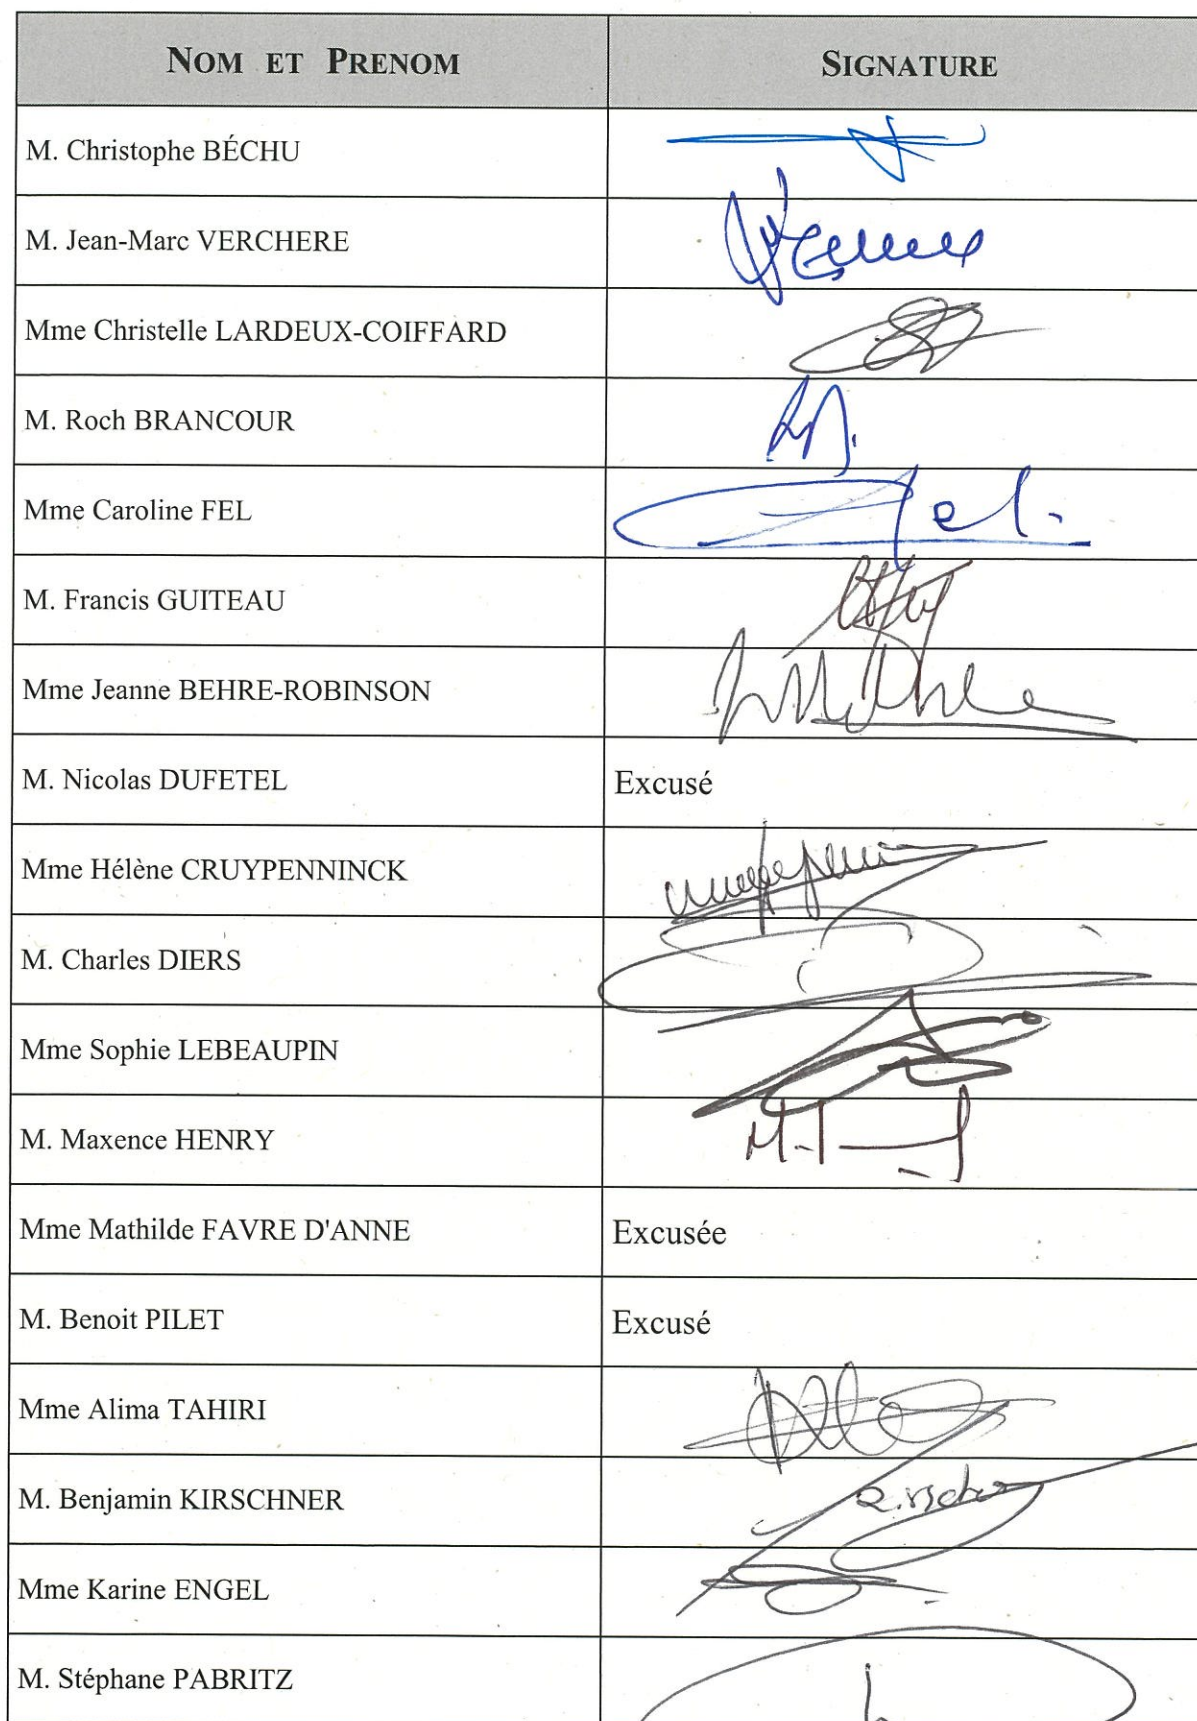 NOM ET PRENOM SIGNATURE
M. Christophe BÉCHU
M. Jean-Marc VERCHERE
Mme Christelle LARDEUX-COIFFARD
M. Roch BRANCOUR
Mme Caroline FEL
M. Francis GUITEAU
Mme Jeanne BEHRE-ROBINSON
M. Nicolas DUFETEL Excusé
Mme Hélène CRUYPENNINCK
M. Charles DIERS
Mme Sophie LEBEAUPIN
M. Maxence HENRY
Mme Mathilde FAVRE D'ANNE Excusée
M. Benoit PILET Excusé
Mme Alima TAHIRI
M. Benjamin KIRSCHNER
Mme Karine ENGEL
M. Stéphane PABRITZ